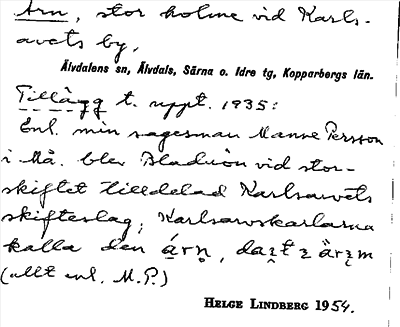 Arn, stor holme vid Karls-
arvets by,
Älvdalens sn, Älvdals, Särna o. Idre tg, Kopparbergs län.
Tillägg t. uppt. 1935:
Enl. min sagesman Manne Persson
i Må. blev Bladuön vid stor-
skiftet tilldelad Karlsarvets
skifteslag; Karlsarvskarlarna
kalla den árn̥, 
(allt enl. M.P.)
HELGE LINDBERG 1954.